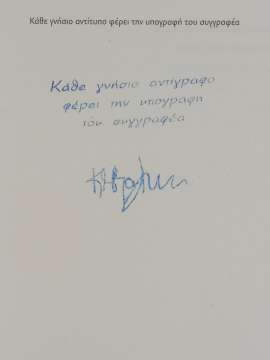 Κάθε γνήσιο αντίτυπο φέρει την υπογραφή του συγγραφέα
Κάθε γνήσιο αντίγραφο
φέρει την υπογραφη
τού συγγραφέα